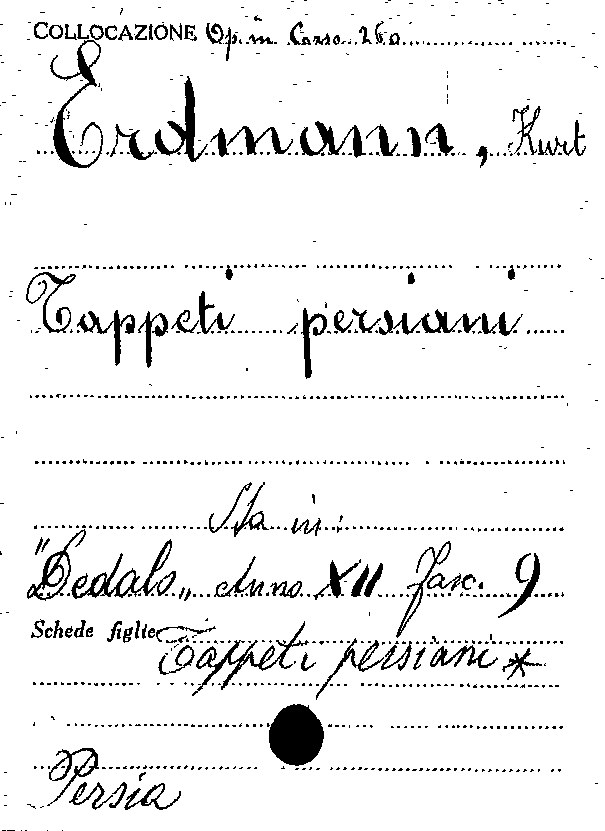 COLLOCAZIONE Op. in Corso 260
Erdmann, Kurt
Tappeti persiani
Sta in:
"Dedalo„ Anno XII fasc. 9
Schede figlie Tappeti persiani *
Persia